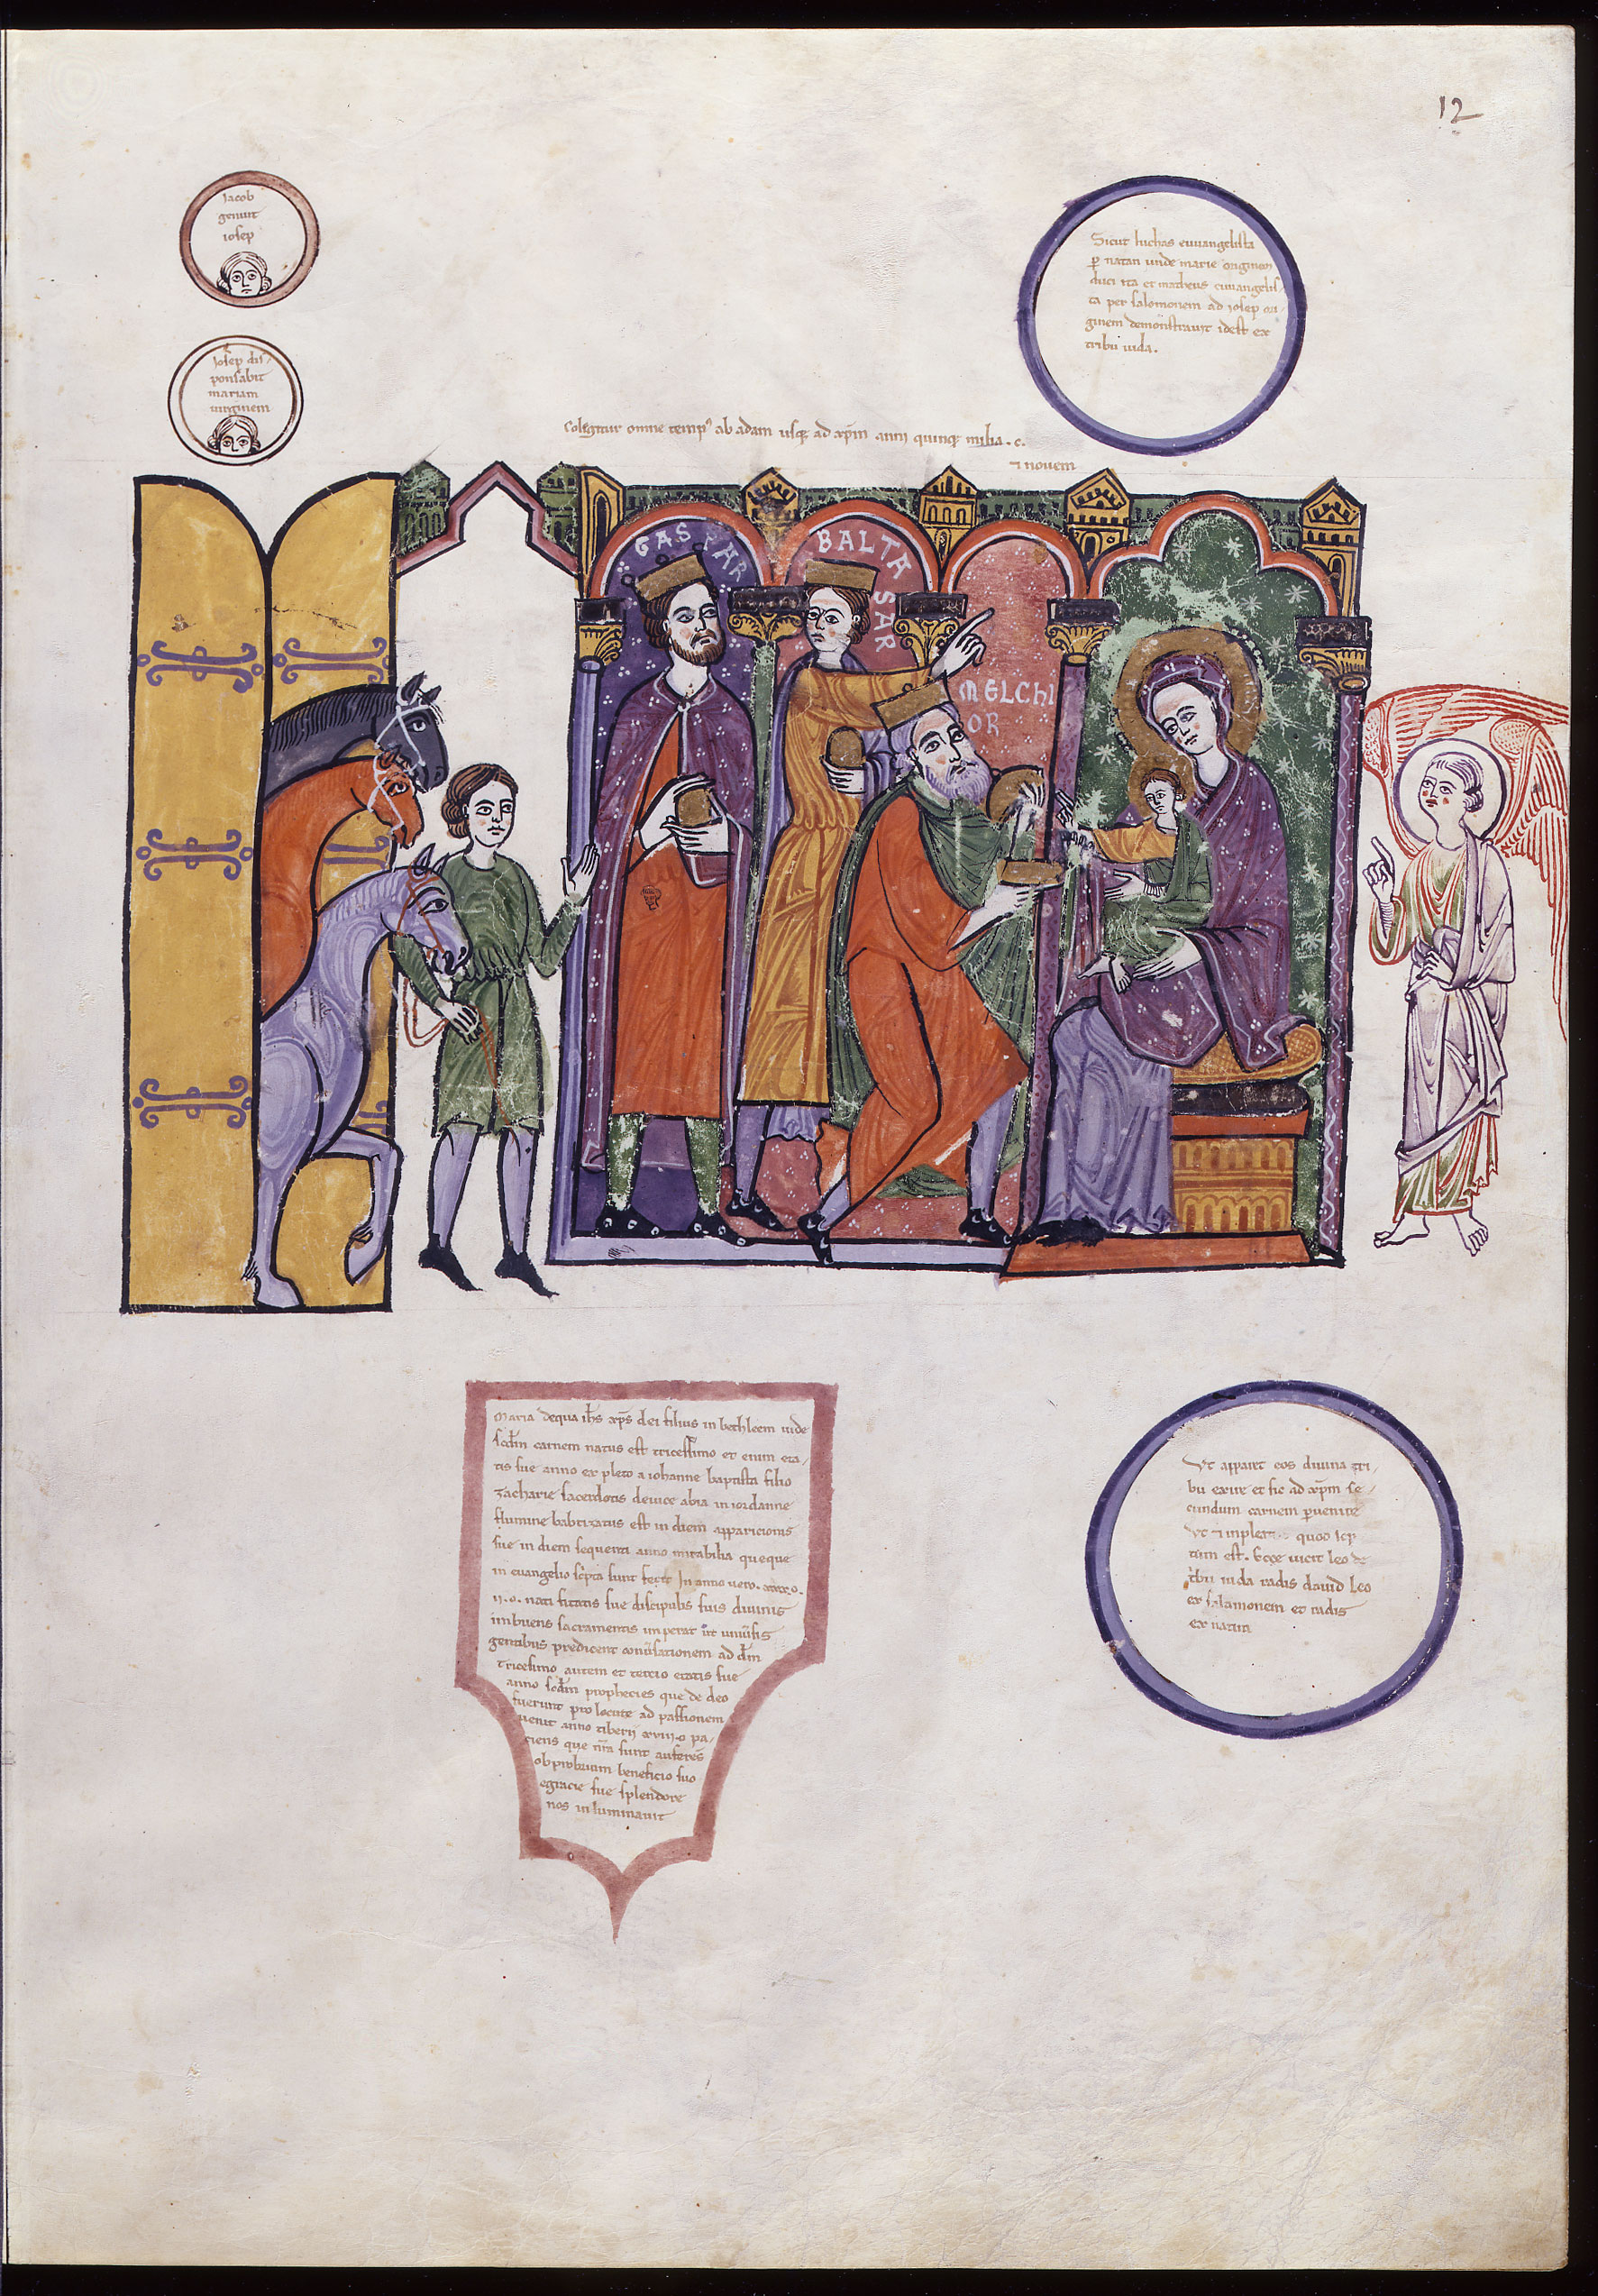 12
Jacob
genuit
ioseꝑ
Joseꝑ dis
ponsabit
mariam
uirginem
Sicut luchas euuangelista
ꝑ natan unde marie originem
duci ita et matheus euuangelis
ta per salomonem ad ioseꝑ ori
ginem demonstrauit idest ex
tribu iuda.
Colegitur omne temp⁹ ab adam usq; ad xp̄m anni quinq; milia . c.
⁊ novem
GASPAR
BALTA
SAR
MELCHI
OR
Maria dequa ih̄s xp̄s dei filius in bethleem iude
sc̄dm carnem natus est tricessimo et enim eta
tis sue anno ex pleto a iohanne baptista filio
zacharie sacerdotis deuice abia in iordanne
flumine babtizatus est in diem apparicionis
sue in diem sequenti anno mirabilia queque
in euangelio sc̄pta sunt fecit In anno uero . xxx.o.
ii.o. nati uitatis sue discipulis suis diuinis
imbuens sacramentis imperat ut uniuersis
gentibus predicent conuersationem ad dm̄
Tricesimo autem et tercio etatis sue
anno sc̄dm prophecies que de deo
fuerunt pro locute ad passionem
uenit anno tiberii xviii.o pa
ciens que nr̄a sunt auferens
obprobrium beneficio suo
egracie sue splendore
nos in luminauit
Ut appairet eos diuina tri
bu exire et sic ad xp̄m se
cundum carnem ꝑuenire
Ut ⁊ inpleat quod scꝑ
tum est. Ecce uicit leo de
tribu iuda radis dauid leo
ex salamonem et radis
ex natan